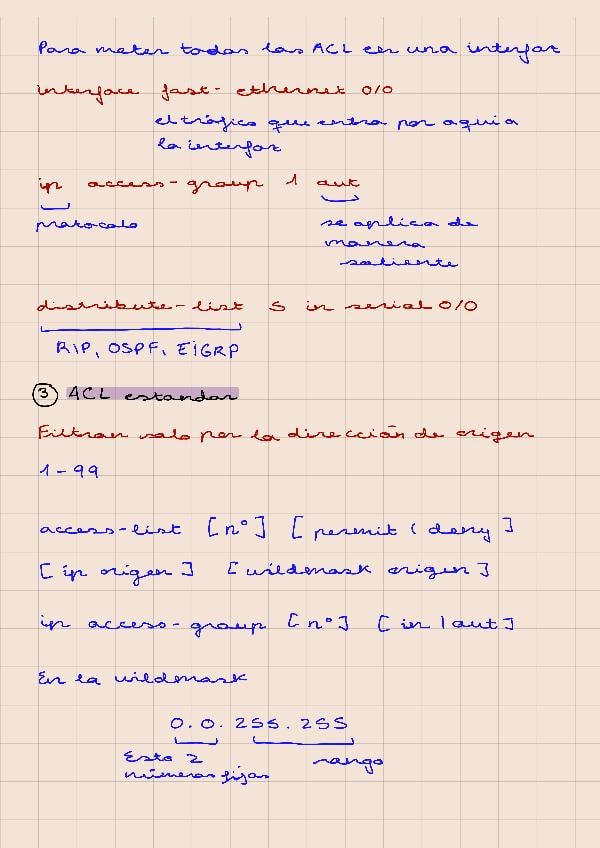 Para meter todas las ACL en una interfaz
interface fast-ethernet 0/0
el tráfico que entra por aquí a
la interfaz
ip access-group 1 out
protocolo
se aplica de
manera
saliente
distribute-list 5 in serial 0/0
RIP, OSPF, EIGRP
3 ACL estandar
Filtran solo por la dirección de origen
1-99
access-list [nº] [permit | deny]
[ip origen] [wildmask origen]
ip access-group [nº] [in | out]
En la wildmask
0.0.255.255
Esto 2
números fijos
rango